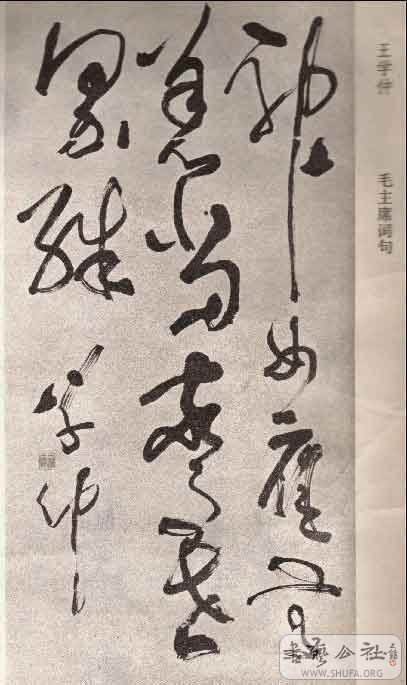 王学仲　毛主席词句
神女應无
恙當驚世
界殊
学仲
書藝公社
WWW.SHUFA.ORG